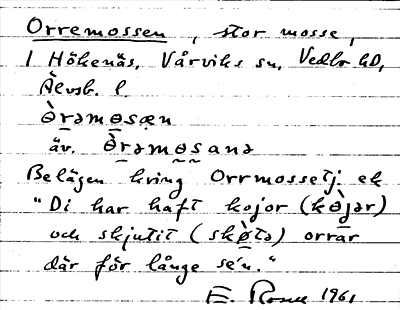 Orremossen, stor mosse,
i Hökenäs, Vårviks sn, Vedbo hd,
Älvsb. l.
ὲrəmɵsæn
äv. ὲrəmɵsanə
Belägen kring Orrmossetj. ek
"Di har haft kojor (kɵ̀jər)
och skjutit (skɵ̀tə) orrar
där för länge se'n."
E. Rosell 1961